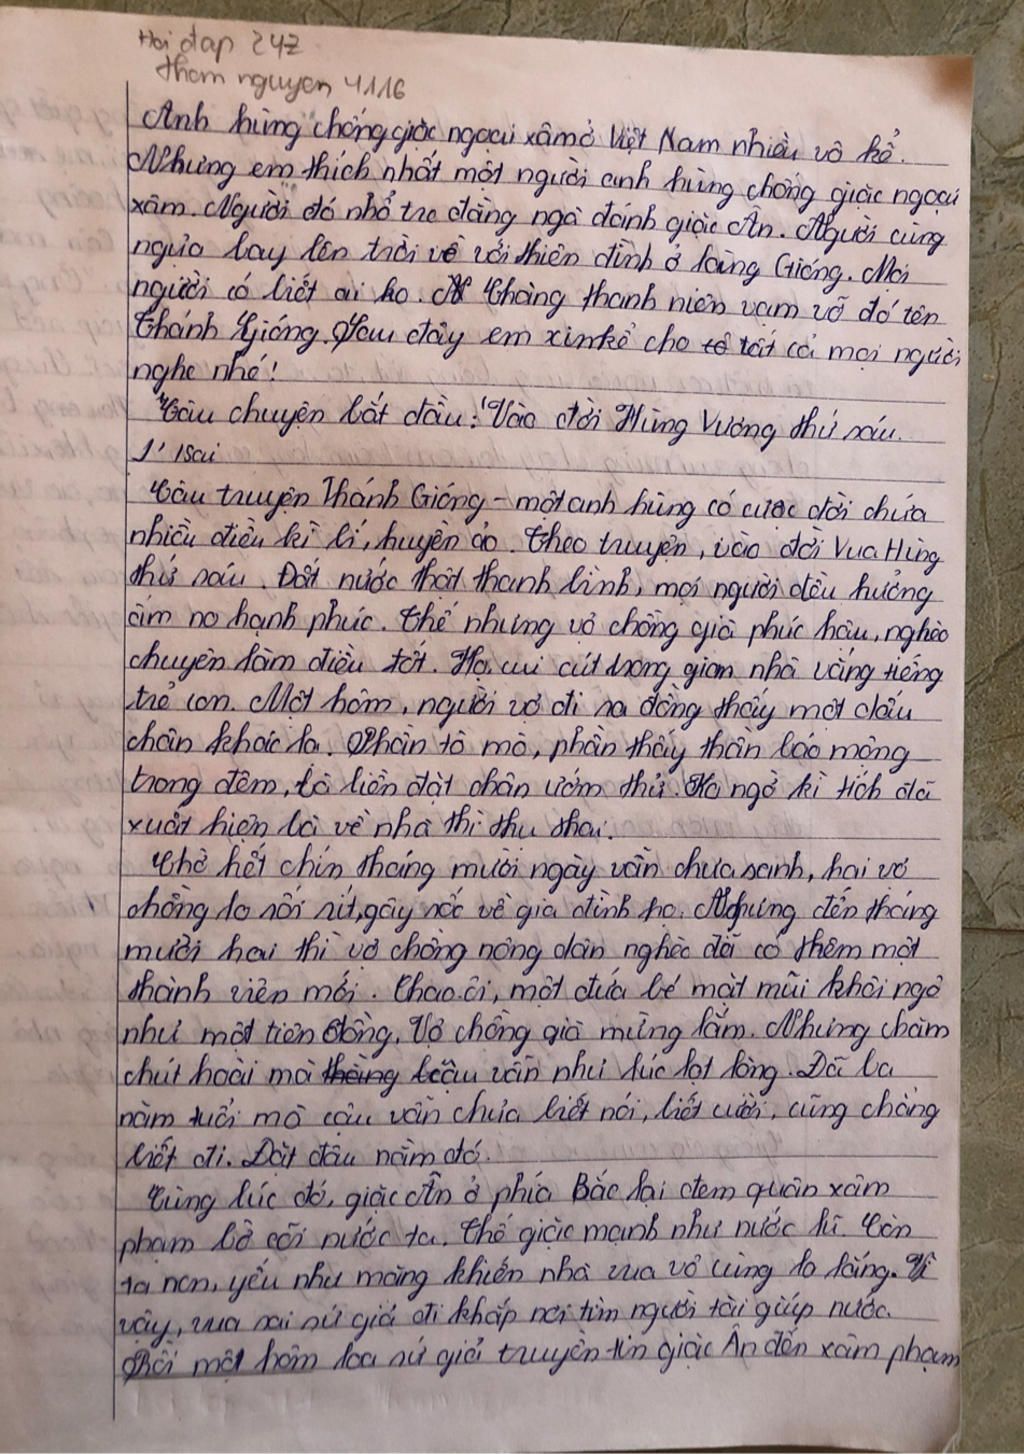 Hỏi đáp 247
thom nguyen 4116
Anh hùng chống giặc ngoại xâm ở Việt Nam nhiều vô kể.
Nhưng em thích nhất một người anh hùng chống giặc ngoại
xâm. Người đó nhổ tre đằng ngà đánh giặc Ân. Người cùng
ngựa bay lên trời về với thiên đình ở làng Gióng. Mọi
người có biết ai ko. Chàng thanh niên vạm vỡ đó tên
Thánh Gióng. Sau đây em xin kể cho tất cả mọi người
nghe nhé!
Câu chuyện bắt đầu: Vào đời Hùng Vương thứ sáu.
Câu truyện Thánh Gióng - một anh hùng có cuộc đời chứa
nhiều điều kì lí, huyền ảo. Theo truyện, vào đời Vua Hùng
thứ sáu. Đất nước thật thanh bình, mọi người đều hưởng
ấm no hạnh phúc. Thế nhưng vợ chồng già phúc hậu, nghèo
chuyên làm điều tốt. Họ cui cút trong gian nhà vắng tiếng
trẻ con. Một hôm, người vợ đi ra đồng thấy một dấu
chân khác lạ. Phần tò mò, phần thấy thần báo mộng
trong đêm, bà liền đặt chân ướm thử. Ko ngờ kì tích đã
xuất hiện bà về nhà thì thụ thai.
Chờ hết chín tháng mười ngày vẫn chưa sanh, hai vợ
chồng lo sốt rít, gây sốc về gia đình họ. Nhưng đến tháng
mười hai thì vợ chồng nông dân nghèo đã có thêm một
thành viên mới. Chao ôi, một đứa bé mặt mũi khôi ngô
như một tiên đồng. Vợ chồng già mừng lắm. Nhưng chăm
chút hoài mà thằng cậu vẫn như lúc lọt lòng. Đã ba
năm tuổi mà cậu vẫn chưa biết nói, biết cười, cũng chẳng
biết đi. Đặt đâu nằm đó.
Cùng lúc đó, giặc Ân ở phía Bắc lại đem quân xâm
phạm bờ cõi nước ta. Thế giặc mạnh như nước lũ. Còn
ta non, yếu như măng khiến nhà vua vô cùng lo lắng. Vì
vậy, vua sai sứ giả đi khắp nơi tìm người tài giúp nước.
Rồi một hôm loa sứ giả truyền tin giặc Ân đến xâm phạm